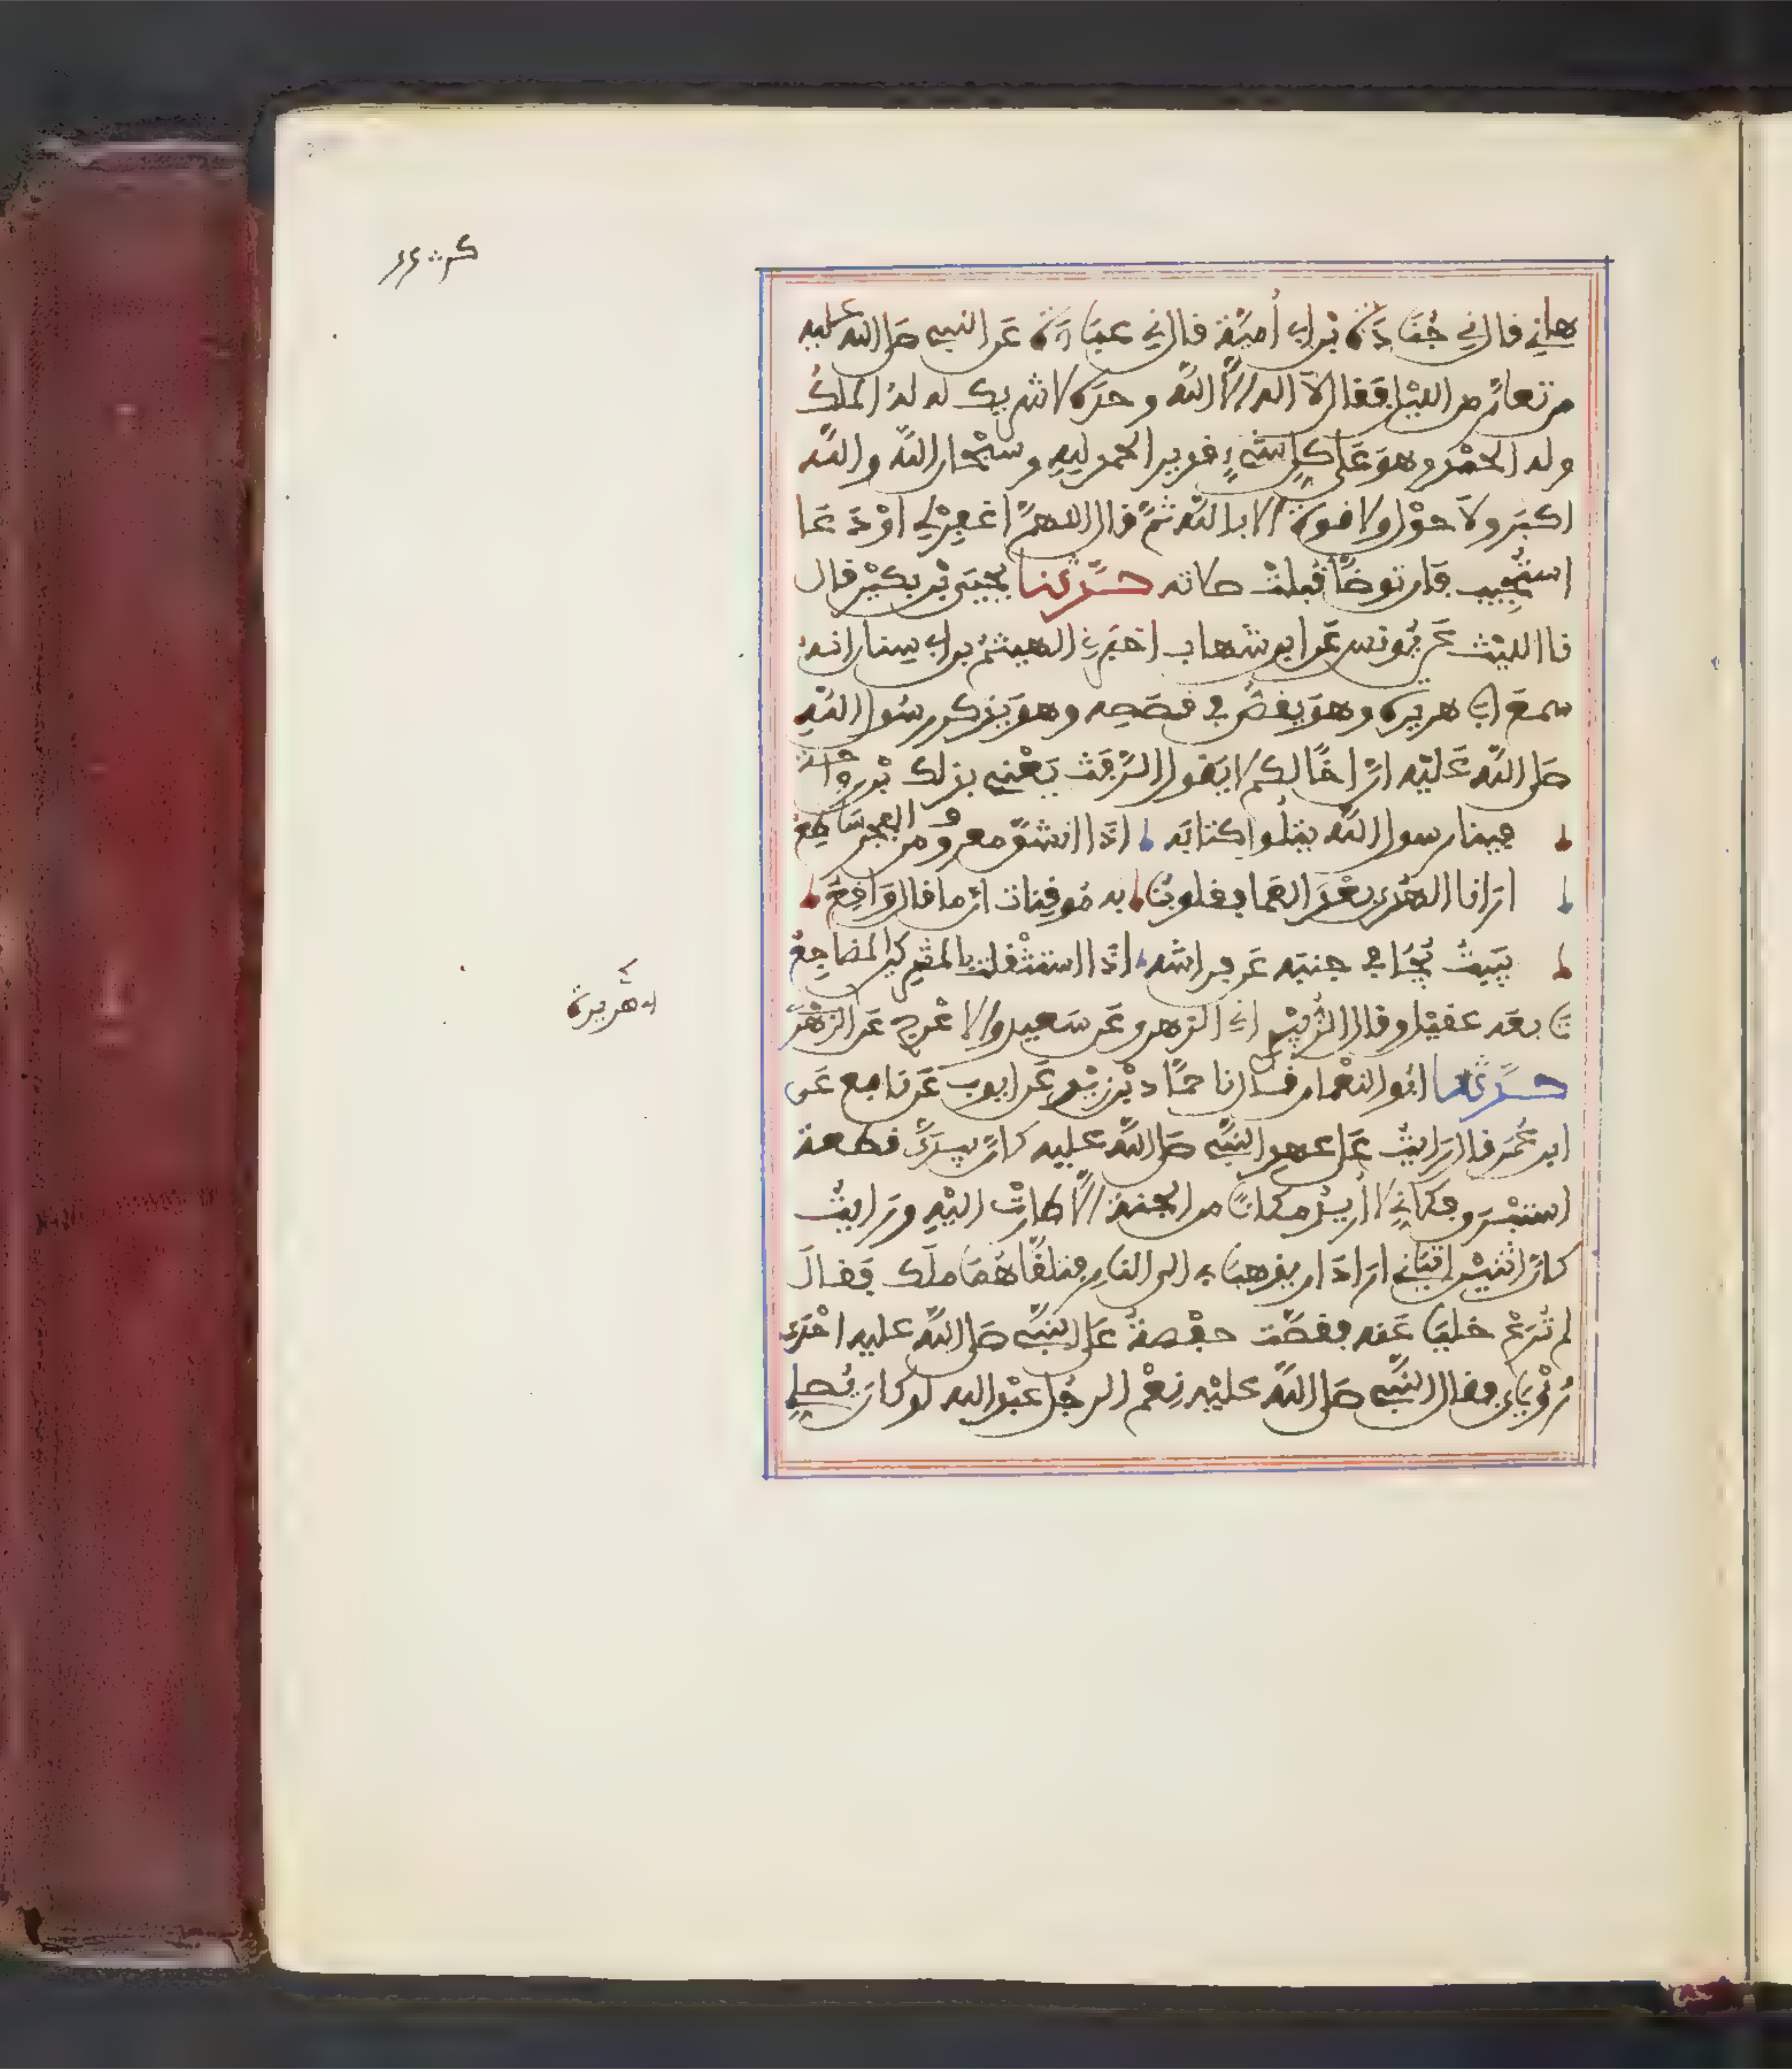 هاني قال ني جُنَادَة بن ابي أميّة قال ني عبَادَة عَن النبي صَلى الله عليه
من تعارّ من الليْل فَقال لآ اله الاَّ اللَّه وحدَه لا شريك له لهُ الملكُ
وله الحمْدُ وهوَ عَلى كلِ شيْءٍ قدير الحمد لِلهِ وسبْحان اللَّه واللَّه
اكبَر ولآ حوْل ولا قوة الا بالله ثمَّ قال اللهمَّ اغفِرْ لِي اوْ دَعَا
استُجِيب فإن توضّأ قُبلتْ صلاته حدّثنا يحيَى بْن بكيْر قال
نا الليْث عَن يُونس عَن ابن شهاب اخبَرني الهيثمُ بن ابي سِنان انه
سمعَ ابَا هريرة وهوَ يقصُّ في قصَصِه وهوَ يَذكر رسُول اللَّهِ
صَلى اللَّه عَليْه انَّ اخًا لكم لا يَقول الرَّفَث يَعْني بذلك بْن رواحَة
فينا رسول اللَّه يتْلُوا كتابَه اذَا انشقّ معروف من الفجْر سَاطِعُ
ارَانا الهُدى بعْدَ العَمى فقلوبُنَا به مُوقِنات انّ ما قال وَاقِعُ
يَبِيتُ يُجَافي جنبَه عَن فراشه اذَا استثْقلت بالمشركين المضاجِعُ
تابعَه عقيْل وقال الزُّبيْدي اني الزهري عَن سَعيد والاعْرج عَن الزهْري
حدّثنا ابُو النعْمان قال نا حمَّاد بْن زيْد عَن ايوب عَن نافع عَن
ابن عُمَر قال رَايتُ عَلى عهدِ النبيّ صَلى اللَّه عليه كأنّ بيدِي قطعة
استبْرَق فكأني لا أريدُ مكانًا من الجنة الاَّ طارتْ اليْهِ ورَايتُ
كأنّ اثنيْن اتيَاني ارَادَا ان يذهبَا بي الى النارِ فتلقّاهُمَا ملَك فقالَ
لم تُرَعْ خليَا عَنه فقصّت حفْصة عَلى النبيّ صَلى اللَّه عليه احْدى
رُؤْيَاي فقال النبيّ صَلى اللَّه عليْه نِعْم الرجُل عبْد الله لو كانَ يُصلي
ابي هريرة